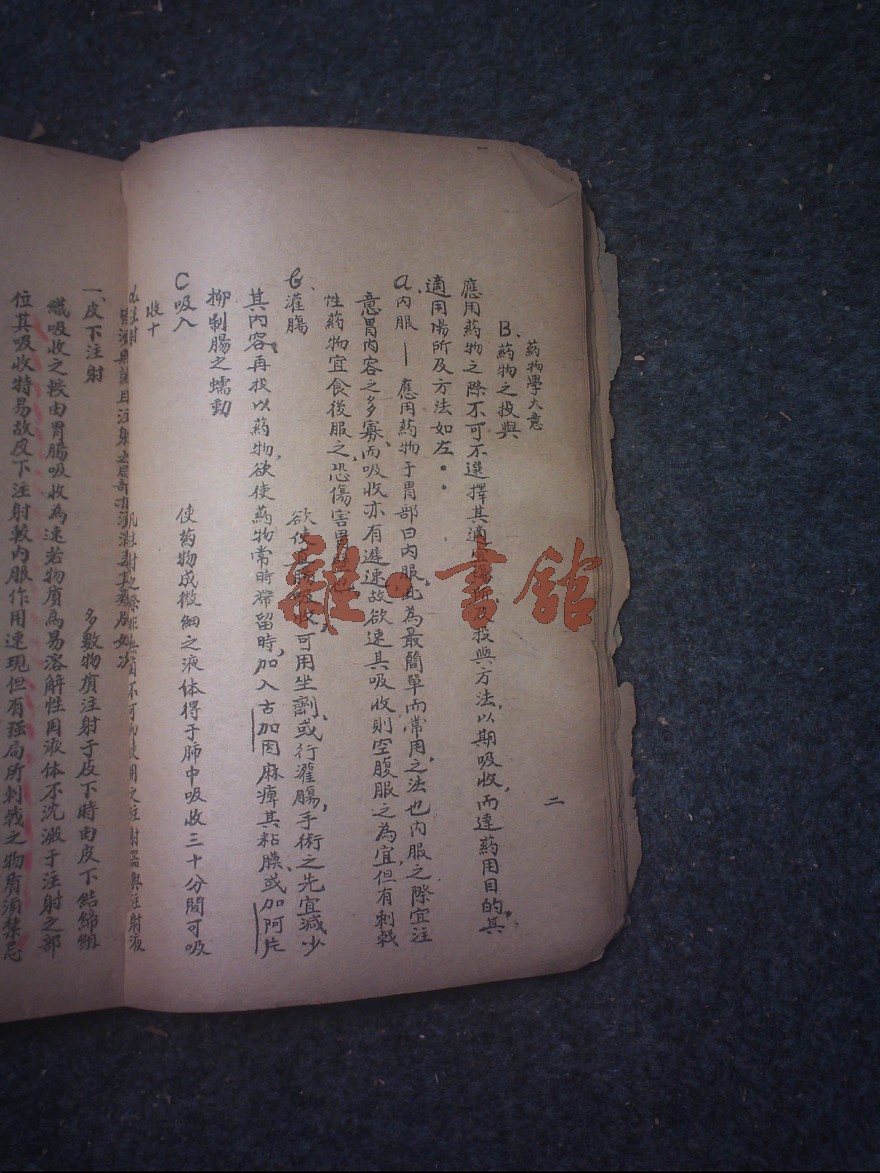 藥物學大意
二
B、藥物之投與
應用藥物之際不可不選擇其適宜場所及投與方法,以期吸收,而達藥用目的其
適用場所及方法如左··
a、內服—應用藥物于胃部曰內服,此為最簡單而常用之法也內服之際宜注
意胃內容之多寡,而吸收亦有遲速故欲速其吸收則空腹服之為宜,但有刺戟
性藥物宜食後服之,恐傷害胃
b、灌腸 欲使 腸吸收可用坐劑,或行灌腸,手術之先宜減少
其內容,再投以藥物,欲使藥物常時滯留時,加入古加因麻痺其粘膜,或加阿片
抑制腸之蠕動
C吸入 使药物成微細之液体得于肺中吸收三十分間可吸
收十
注射 注射之際 不可 用之注射器與注射液
且注射之局部亦須消毒其 如次
一、皮下注射 多數物質注射于皮下時由皮下結締組
織吸收之較由胃腸吸收為速若物质為易溶解性用液体不沈澱于注射之部
位其吸收特易故皮下注射較內服作用速現但有强局所刺戟之物质須禁忌
雜·書館